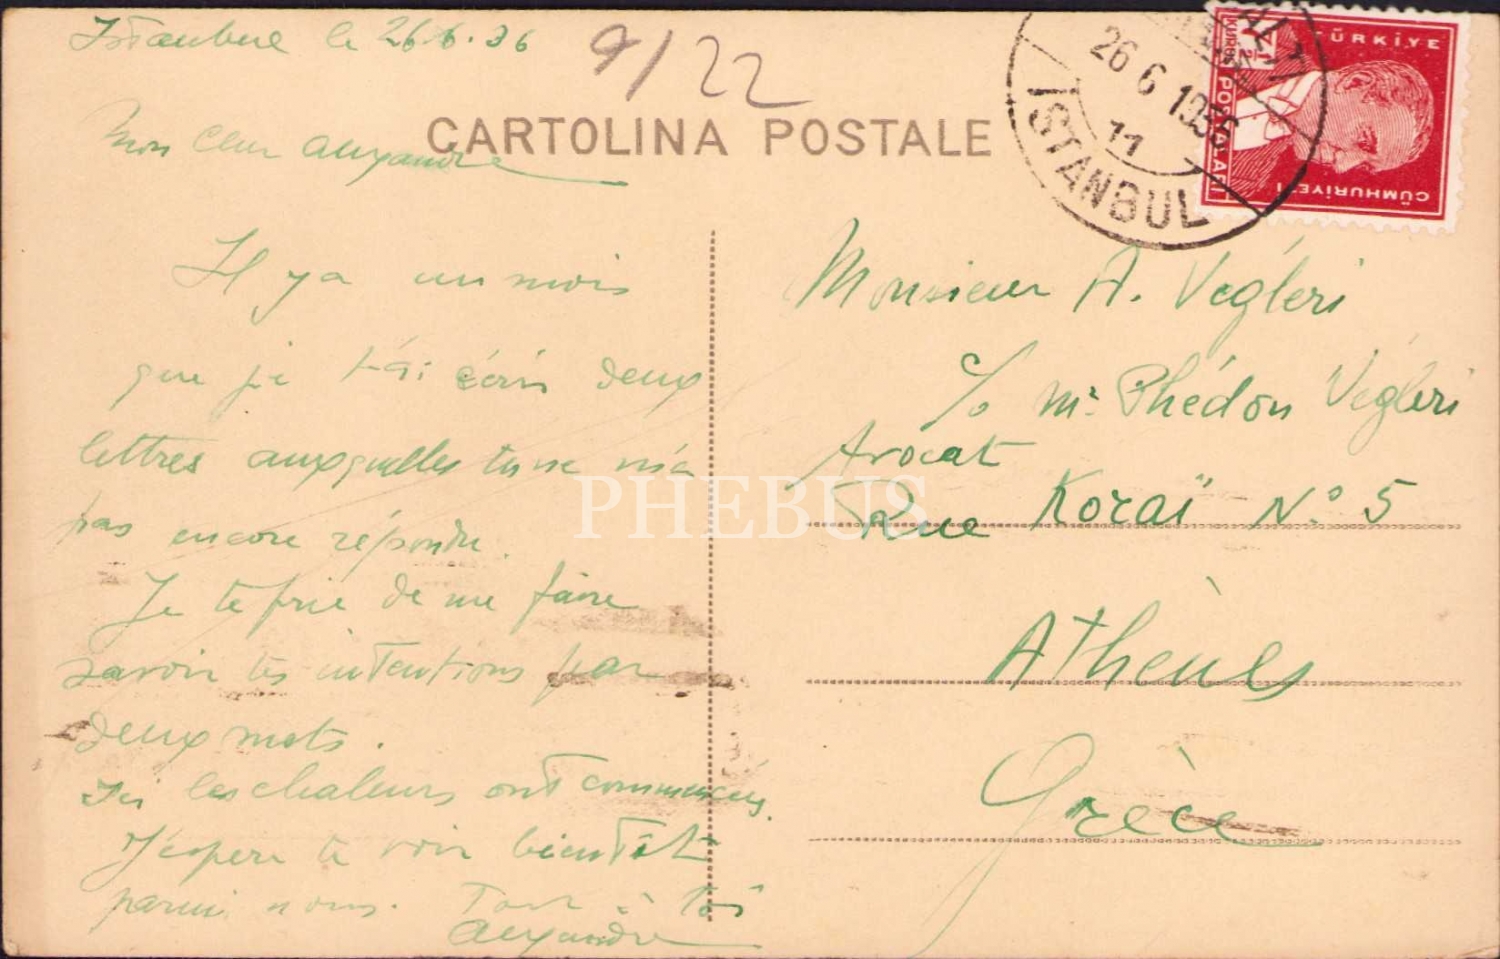 Istanbul le 26.6.36
9/22
CARTOLINA POSTALE
Mon cher Alexandre
Il y a un mois
que je t'ai écris deux
lettres auxquelles tu ne m'a
pas encore répondu.
Je te prie de me faire
savoir tes intentions par
deux mots.
Ici les chaleurs ont commencées.
J'espère te voir bientôt
parmi nous. Tout à toi
Alexandre
26 6 1936
11
ISTANBUL
TÜRKİYE
CÜMHURİYETİ
POSTALARI
KURUŞ
Monsieur A. Vegléri
c/o Mr. Phédon Vegléri
Avocat
Rue Koraï No 5
Athènes
Grèce
PHEBUS